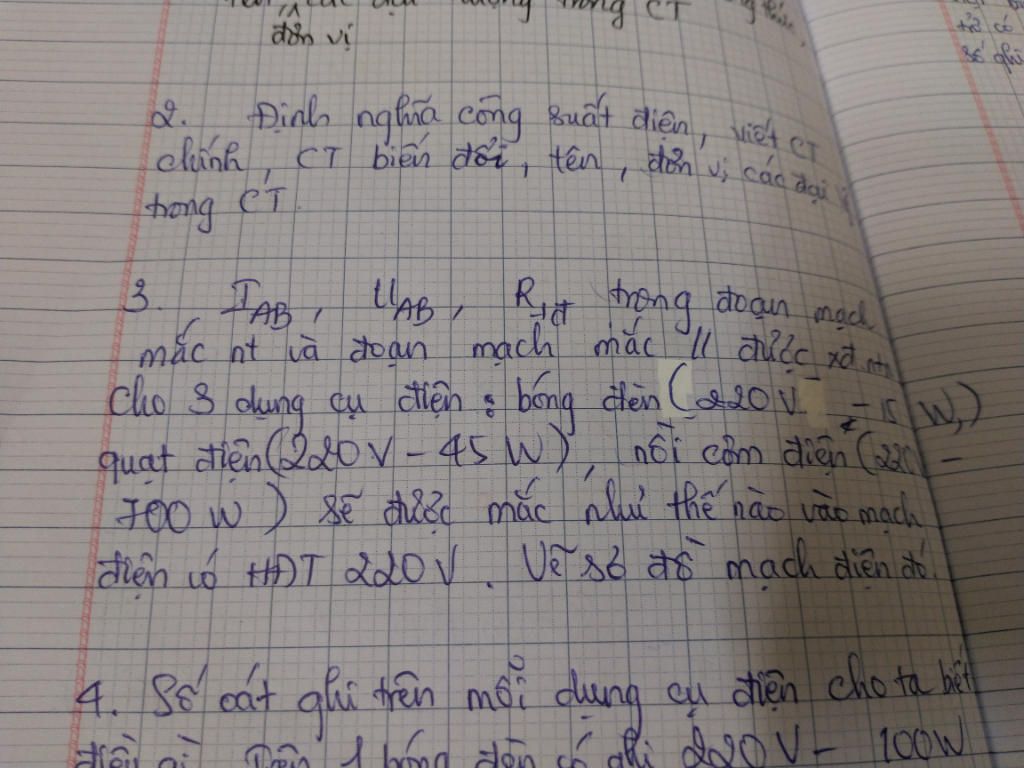 trong CT
đơn vị
2. Định nghĩa công suất điện, viết CT
chính, CT biến đổi, tên, đơn vị các đại
trong CT.
3. I_AB, U_AB, R_tđ trong đoạn mạch
mắc nt và đoạn mạch mắc // được xđ ntn
Cho 3 dụng cụ điện : bóng đèn (220V - 15 W,)
quạt điện (220V - 45 W), nồi cơm điện (220 -
700 W) sẽ được mắc như thế nào vào mạch
điện có HĐT 220V. Vẽ sơ đồ mạch điện đó.
4. Số oát ghi trên mỗi dụng cụ điện cho ta biết
điều gì. Trên 1 bóng đèn có ghi 220V - 100W
có
số ghi